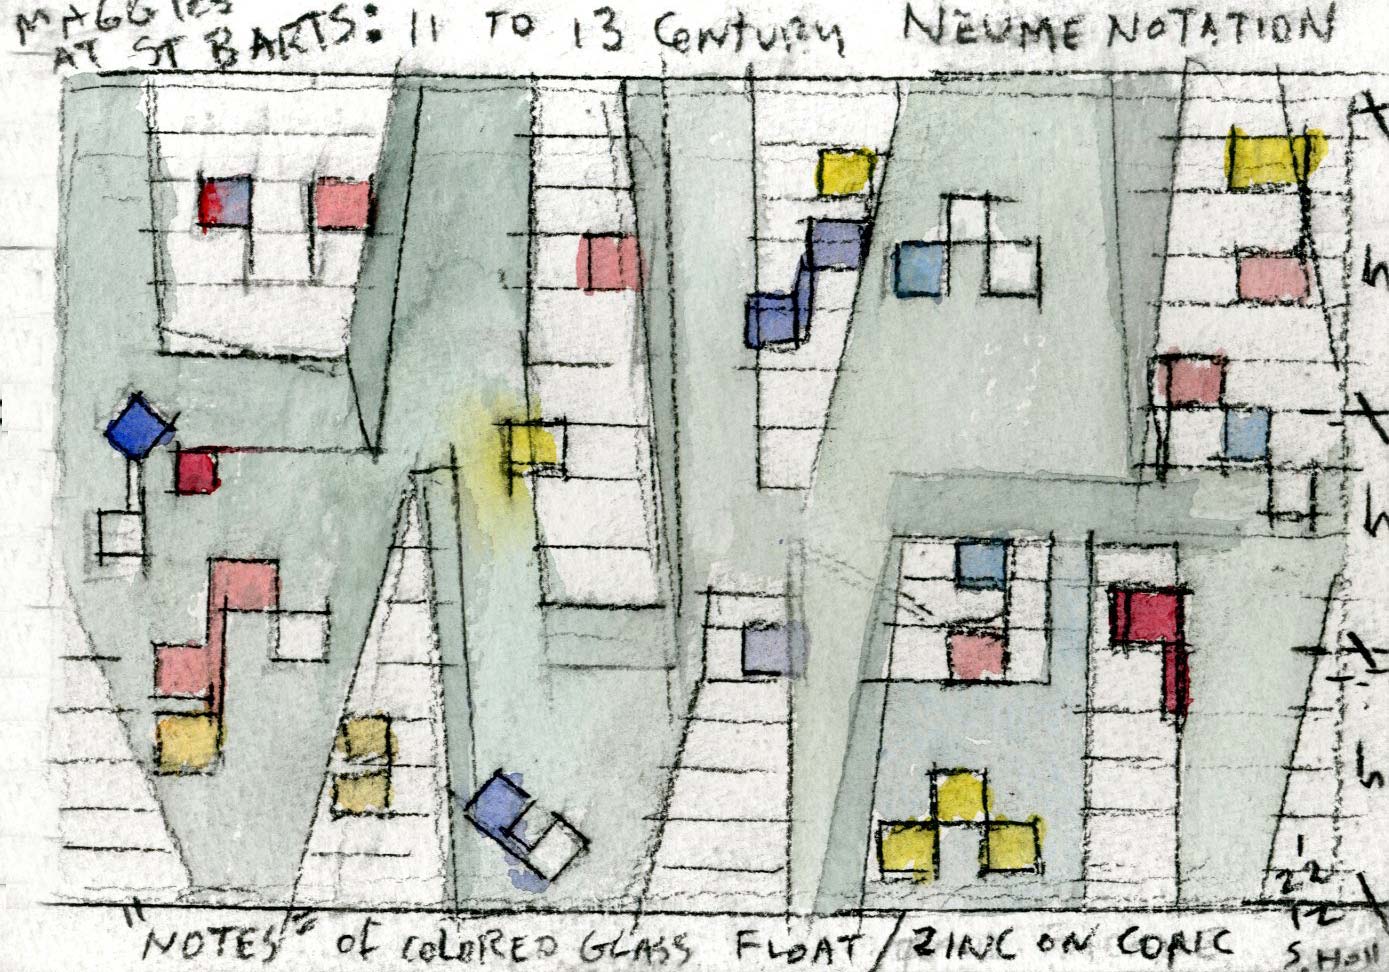 MAGGIES
AT ST BARTS: 11 TO 13 Century NEUME NOTATION
h
h
h
"NOTES" OF COLORED GLASS FLOAT / ZINC ON CONC
S Holl